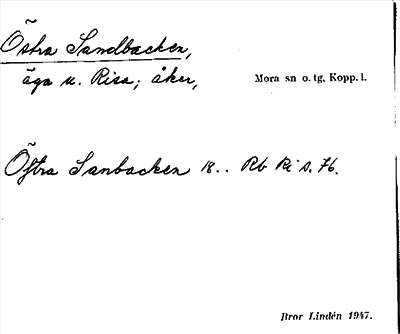 Östra Sandbacken,
äga u. Risa; åker,
Mora sn o. tg, Kopp. l.
Öftra Sanbacken 18.. Rb Ri s. 76.
Bror Lindén 1947.